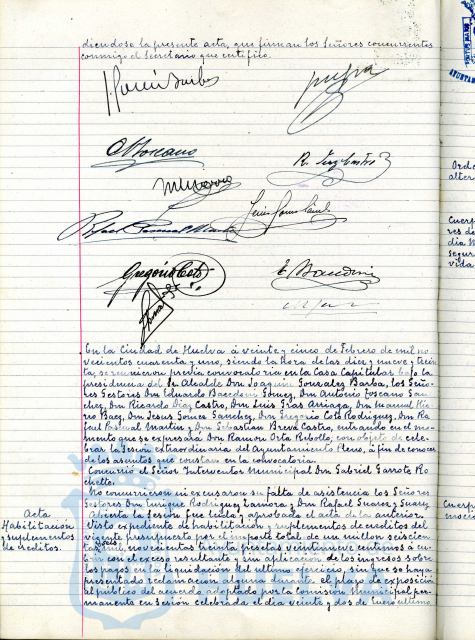 diendose la presente acta, que firman los Señores concurrentes
conmigo el Secretario que certifico.
A Toscano
R. Diaz Castro
Rafael Pascual Martin
Gregorio Coto
E. Bacedoni
En la Ciudad de Huelva á veinte y cinco de Febrero de mil no
vecientos cuarenta y uno, siendo la hora de las diez y nueve y trein
ta, se reunieron previa convocatoria en la Casa Capitular bajo la
presidencia del Sr. Alcalde Don Joaquin Gonzalez Barba, los Seño
res Gestores Don Eduardo Bacedoni Gomez, Don Antonio Toscano San
chez, Don Ricardo Diaz Castro, Don Luis Arriaga, Don Manuel
Don Jesus Gomez Sanchez, Don Gregorio Coto Rodriguez, Don Ra
fael Pascual Martin y Don Sebastian Breva Castro, entrando en el mo
mento que se expresará Don Ramon Orta Rebollo, con objeto de cele
brar la Sesion extraordinaria del Ayuntamiento Pleno, á fin de conocer
de los asuntos que constan en la convocatoria.
Concurrió el Señor Interventor Municipal Don Gabriel Garrote Ro
chette.
No concurrieron ni excusaron su falta de asistencia los Señores
Gestores Don Enrique Rodriguez Zamora y Don Rafael Suarez Suarez
Acta
Abierta la Sesion fue leida y aprobada el acta de la anterior.
Habilitación
y suplementos
de creditos.
Visto expediente de habilitación y suplementos de creditos del
vigente presupuesto por el importe total de un millon seiscien
tas mil, novecientas treinta pesetas veintinueve centimos á cu
brir con el exceso resultante y sin aplicación de los ingresos sobre
los pagos en la liquidación del ultimo ejercicio, sin que se haya
presentado reclamación alguna durante el plazo de exposición
al publico del acuerdo adoptado por la Comisión Municipal per
manente en Sesión celebrada el dia veinte y dos de Enero ultimo
Orde
alter
Cuerp
res de
dia
segur
vida
Cuerpo